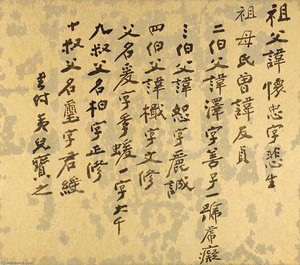 祖父諱懷忠字悲生
祖母氏曾諱友貞
二伯父諱澤字善子一號虎癡
三伯父諱恕字麗誠
四伯父諱楫字文修
父名爰字季蝯一字大千
九叔父名柏字正修
十叔父名璽字君綬
付夷兒寶之